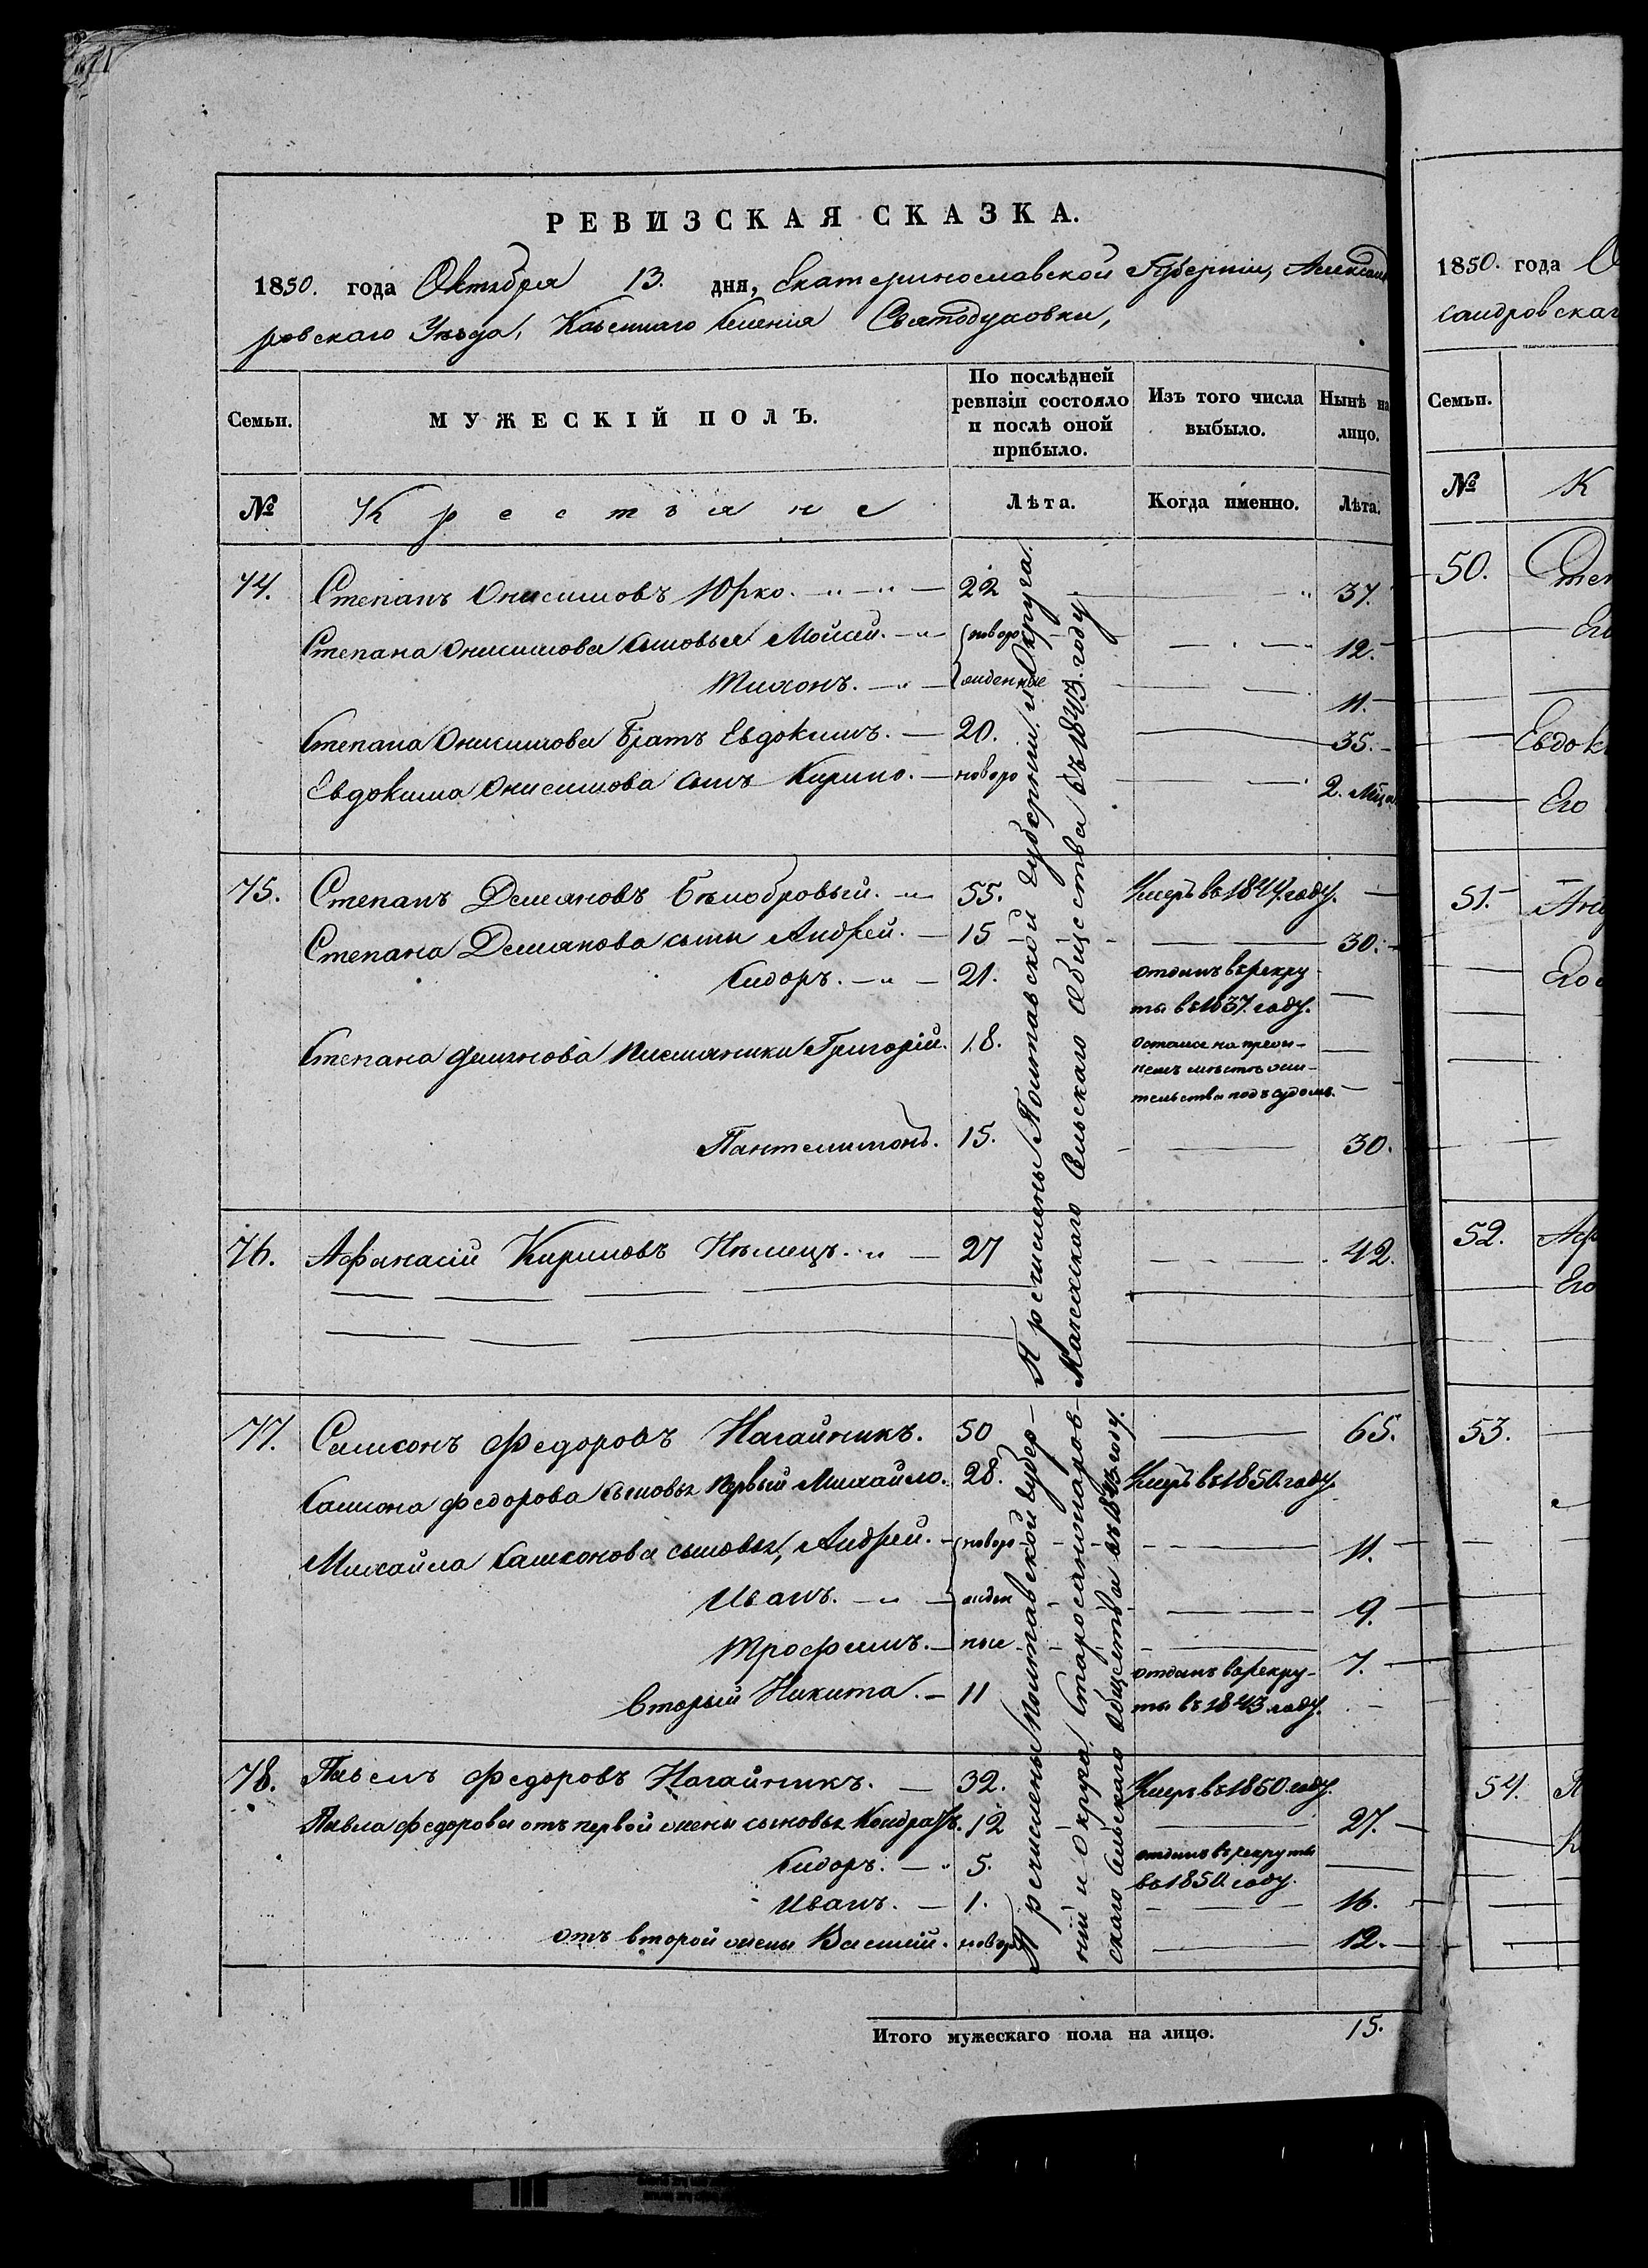 РЕВИЗСКАЯ СКАЗКА.
1850. года Октября 13. дня, Екатеринославской Губерніи, Алексан
ровскаго Уѣзда, Казеннаго Селенія Святодуховки,
Семьи.
МУЖЕСКІЙ ПОЛЪ.
По послѣдней
ревизіи состояло
и послѣ оной
прибыло.
Изъ того числа
выбыло.
Нынѣ на
лицо.
№
Крестьяне
Лѣта.
Когда именно.
Лѣта.
74. Степанъ Онисимовъ Юрко. 22 37.
Степана Онисимова сыновья Мойсей. новоро 12.
Тихонъ. жденные 11.
Степана Онисимова братъ Евдокимъ. 20. 35.
Евдокима Онисимова сынъ Кирило. новоро 2. Мѣца
75. Степанъ Демяновъ Бѣлобровый. 55. Умеръ въ 1844. году.
Степана Демянова сыни Андрей. 15 30.
Сидоръ. 21. отданъ въ рекру
ты въ 1837. году.
Степана Демянова племяники Григорій. 18. остался на преж-
немъ мѣстѣ жи-
тельства подъ судомъ.
Пантелимонъ. 15. 30.
76. Афанасій Кириловъ Нѣмецъ. 27 42.
77. Самсонъ Федоровъ Нагайникъ. 50 65.
Самсона Федорова сыновья первый Михайло. 28. Умеръ въ 1850. году.
Михайла Самсонова сыновья, Андрей. новоро 11.
Иванъ. жден 9.
Трофимъ. ные 7.
вторый Никита. 11 отданъ въ рекру-
ты въ 1843 году.
78. Павелъ Федоровъ Нагайникъ. 32. Умеръ въ 1850. году.
Павла Федорова отъ первой жены сыновья Кондратъ. 12 27.
Сидоръ. 5. отданъ въ рекруты
въ 1850. году.
Иванъ. 1. 16.
отъ второй жены Василій. новор 12.
Причислены Полтавской губерніи и Округа
Мачехскаго Сельскаго Общества въ 1843. году.
Причислены Полтавской губер-
ніи и округа, Старосанжаров-
скаго Сельскаго Общества въ 1843. году.
Итого мужескаго пола на лицо. 15.
1850. года О
сандровскаг
Семьи.
№ К
50. Степ
Его
Евдок
Его
51. Анд
Его
52. Афа
Его
53.
54. П